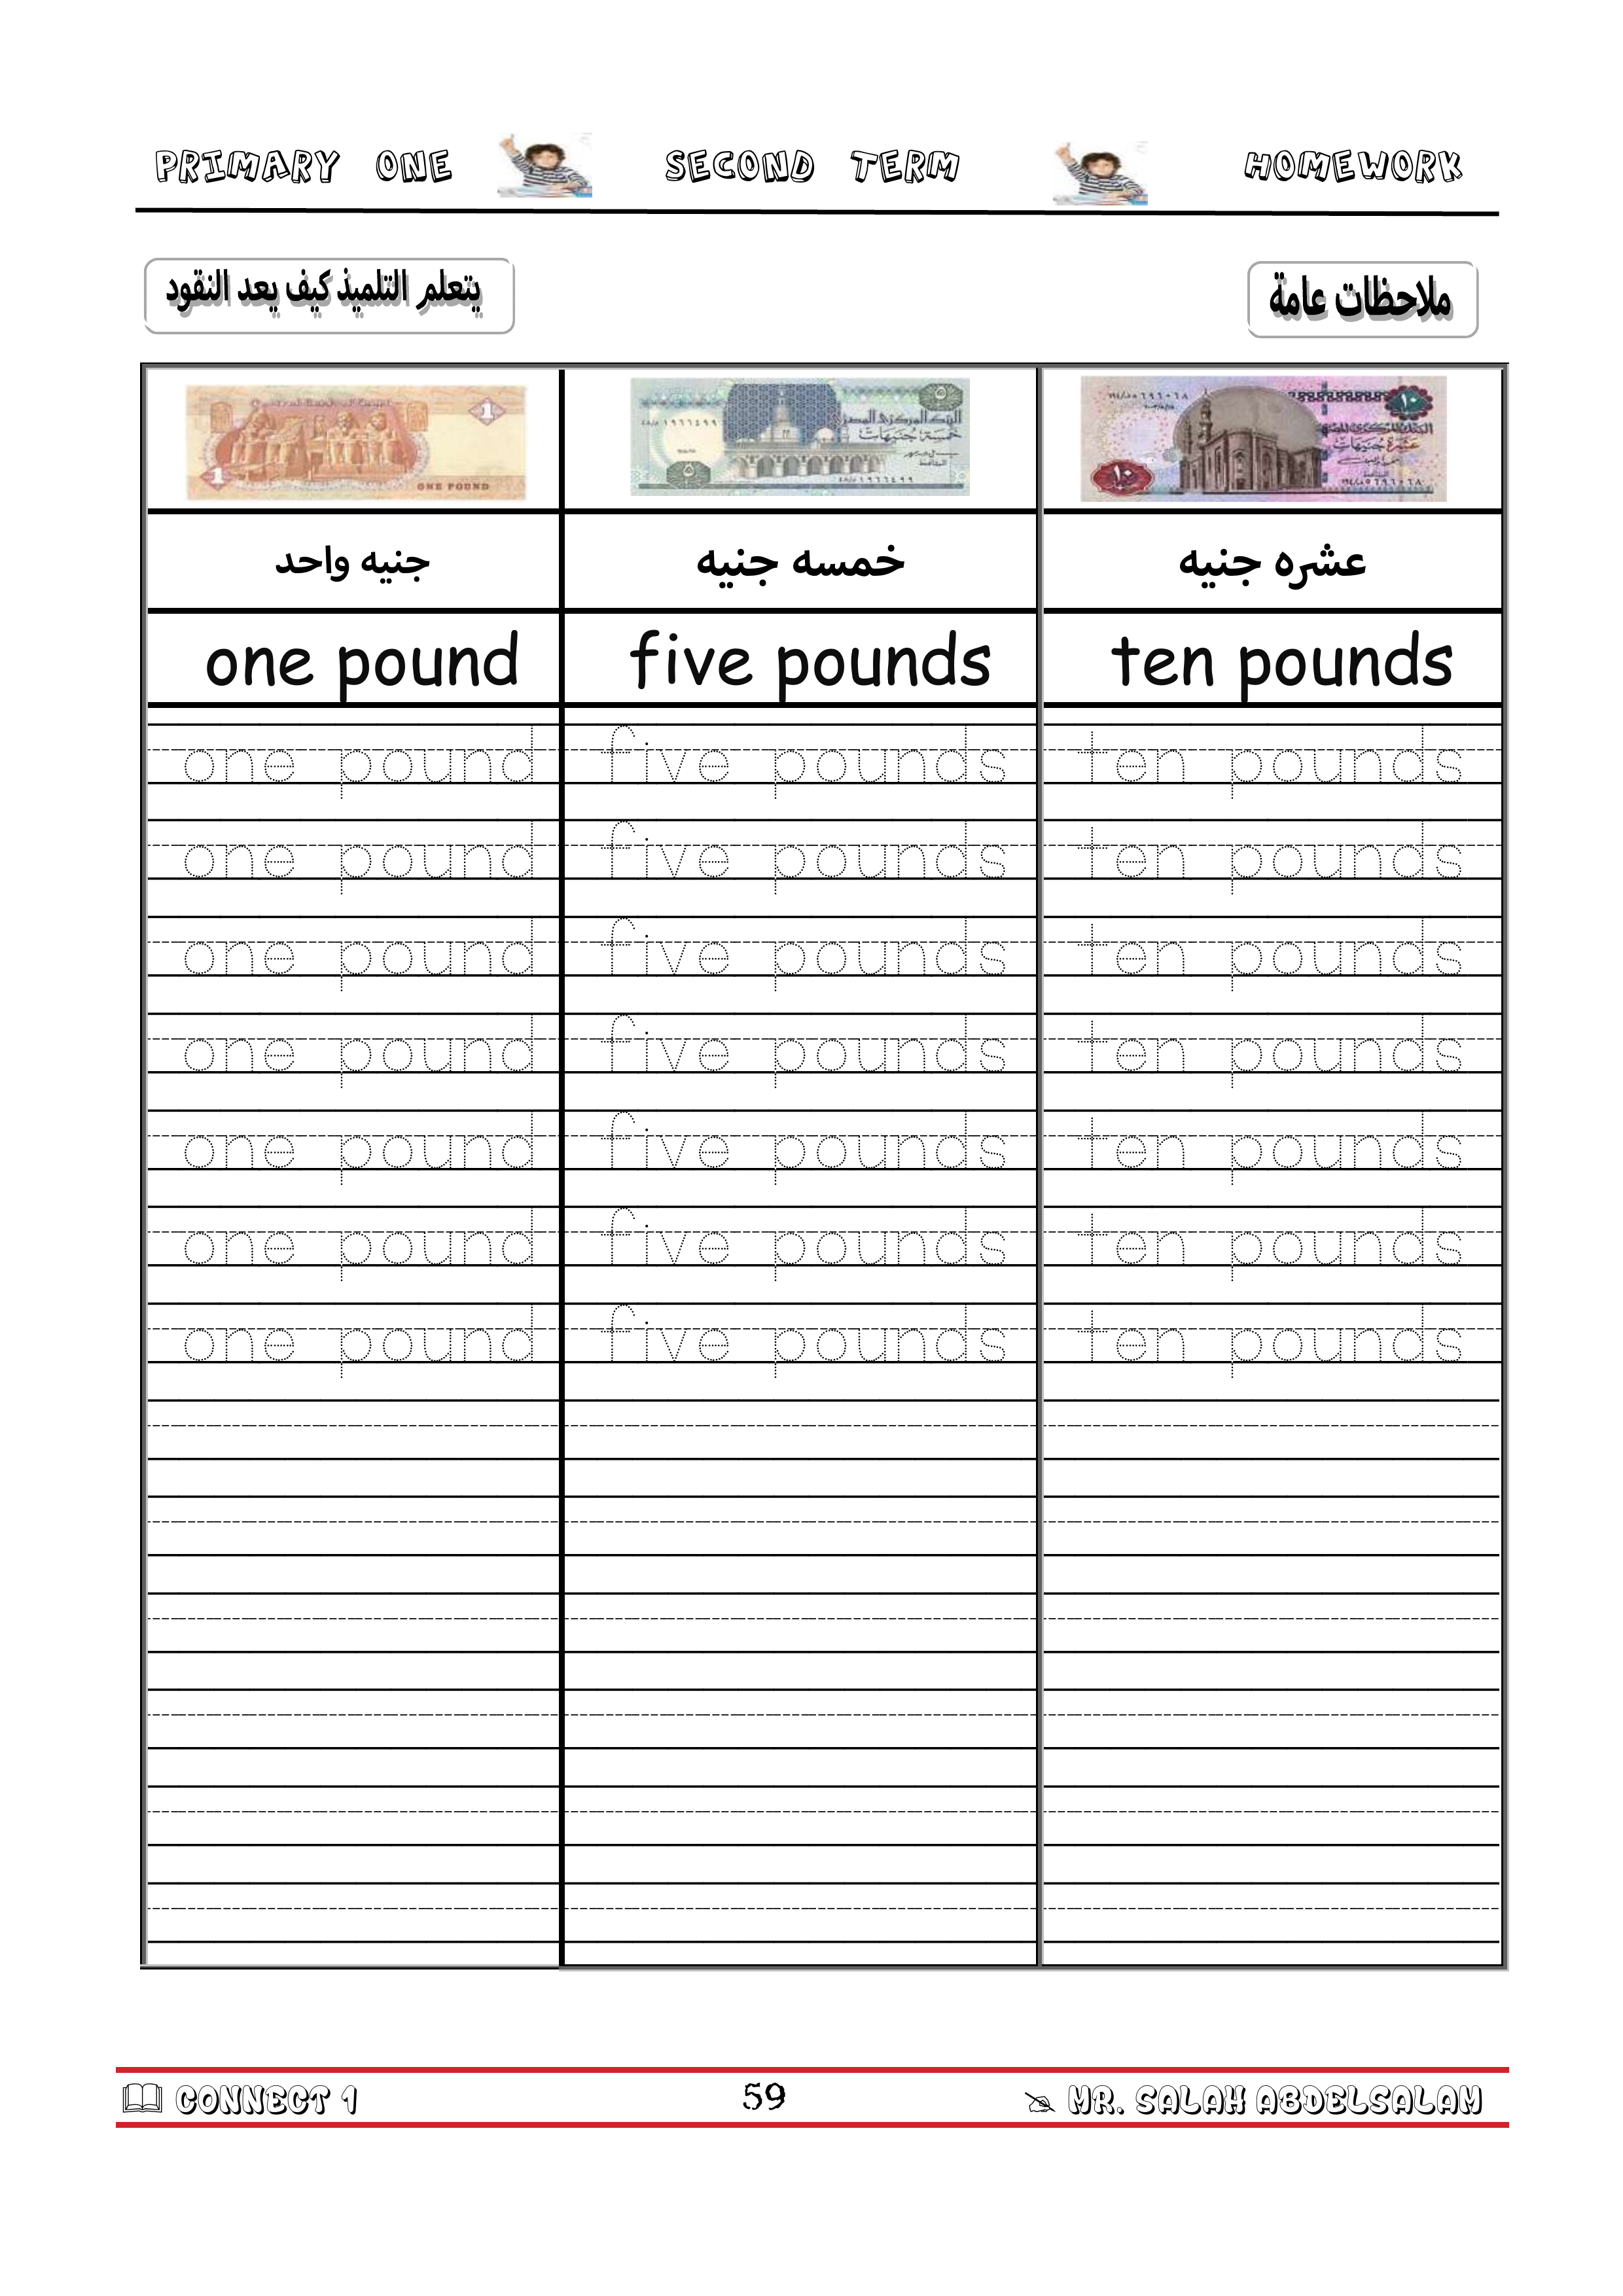 PRIMARY ONE SECOND TERM HOMEWORK
ملاحظات عامة
يتعلم التلميذ كيف يعد النقود
1
1
ONE POUND
٥
البنك المركزى المصرى
خمسة جنيهات
٥
١٠
عشرة جنيهات
١٠
جنيه واحد خمسه جنيه عشره جنيه
one pound five pounds ten pounds
one pound five pounds ten pounds
one pound five pounds ten pounds
one pound five pounds ten pounds
one pound five pounds ten pounds
one pound five pounds ten pounds
one pound five pounds ten pounds
one pound five pounds ten pounds
CONNECT 1 59 MR. SALAH ABDELSALAM